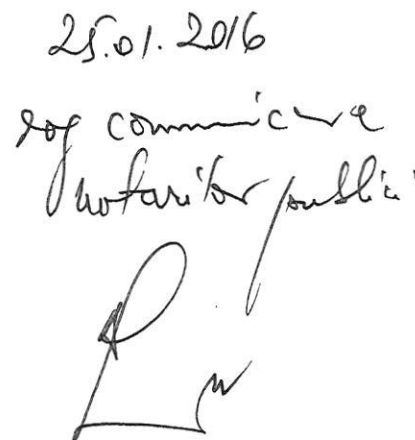 25.01.2016
rog comunicare
notarilor publici